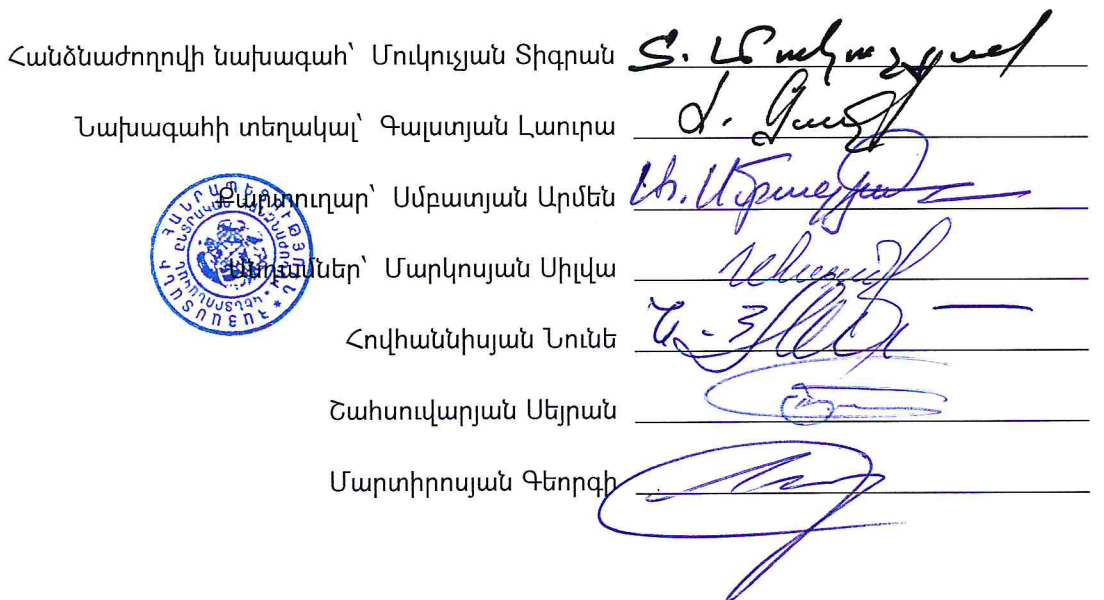 Հանձնաժողովի նախագահ՝ Մուկուչյան Տիգրան
Նախագահի տեղակալ՝ Գալստյան Լաուրա
Քարտուղար՝ Սմբատյան Արմեն
Անդամներ՝ Մարկոսյան Սիլվա
Հովհաննիսյան Նունե
Շահսուվարյան Սեյրան
Մարտիրոսյան Գեորգի